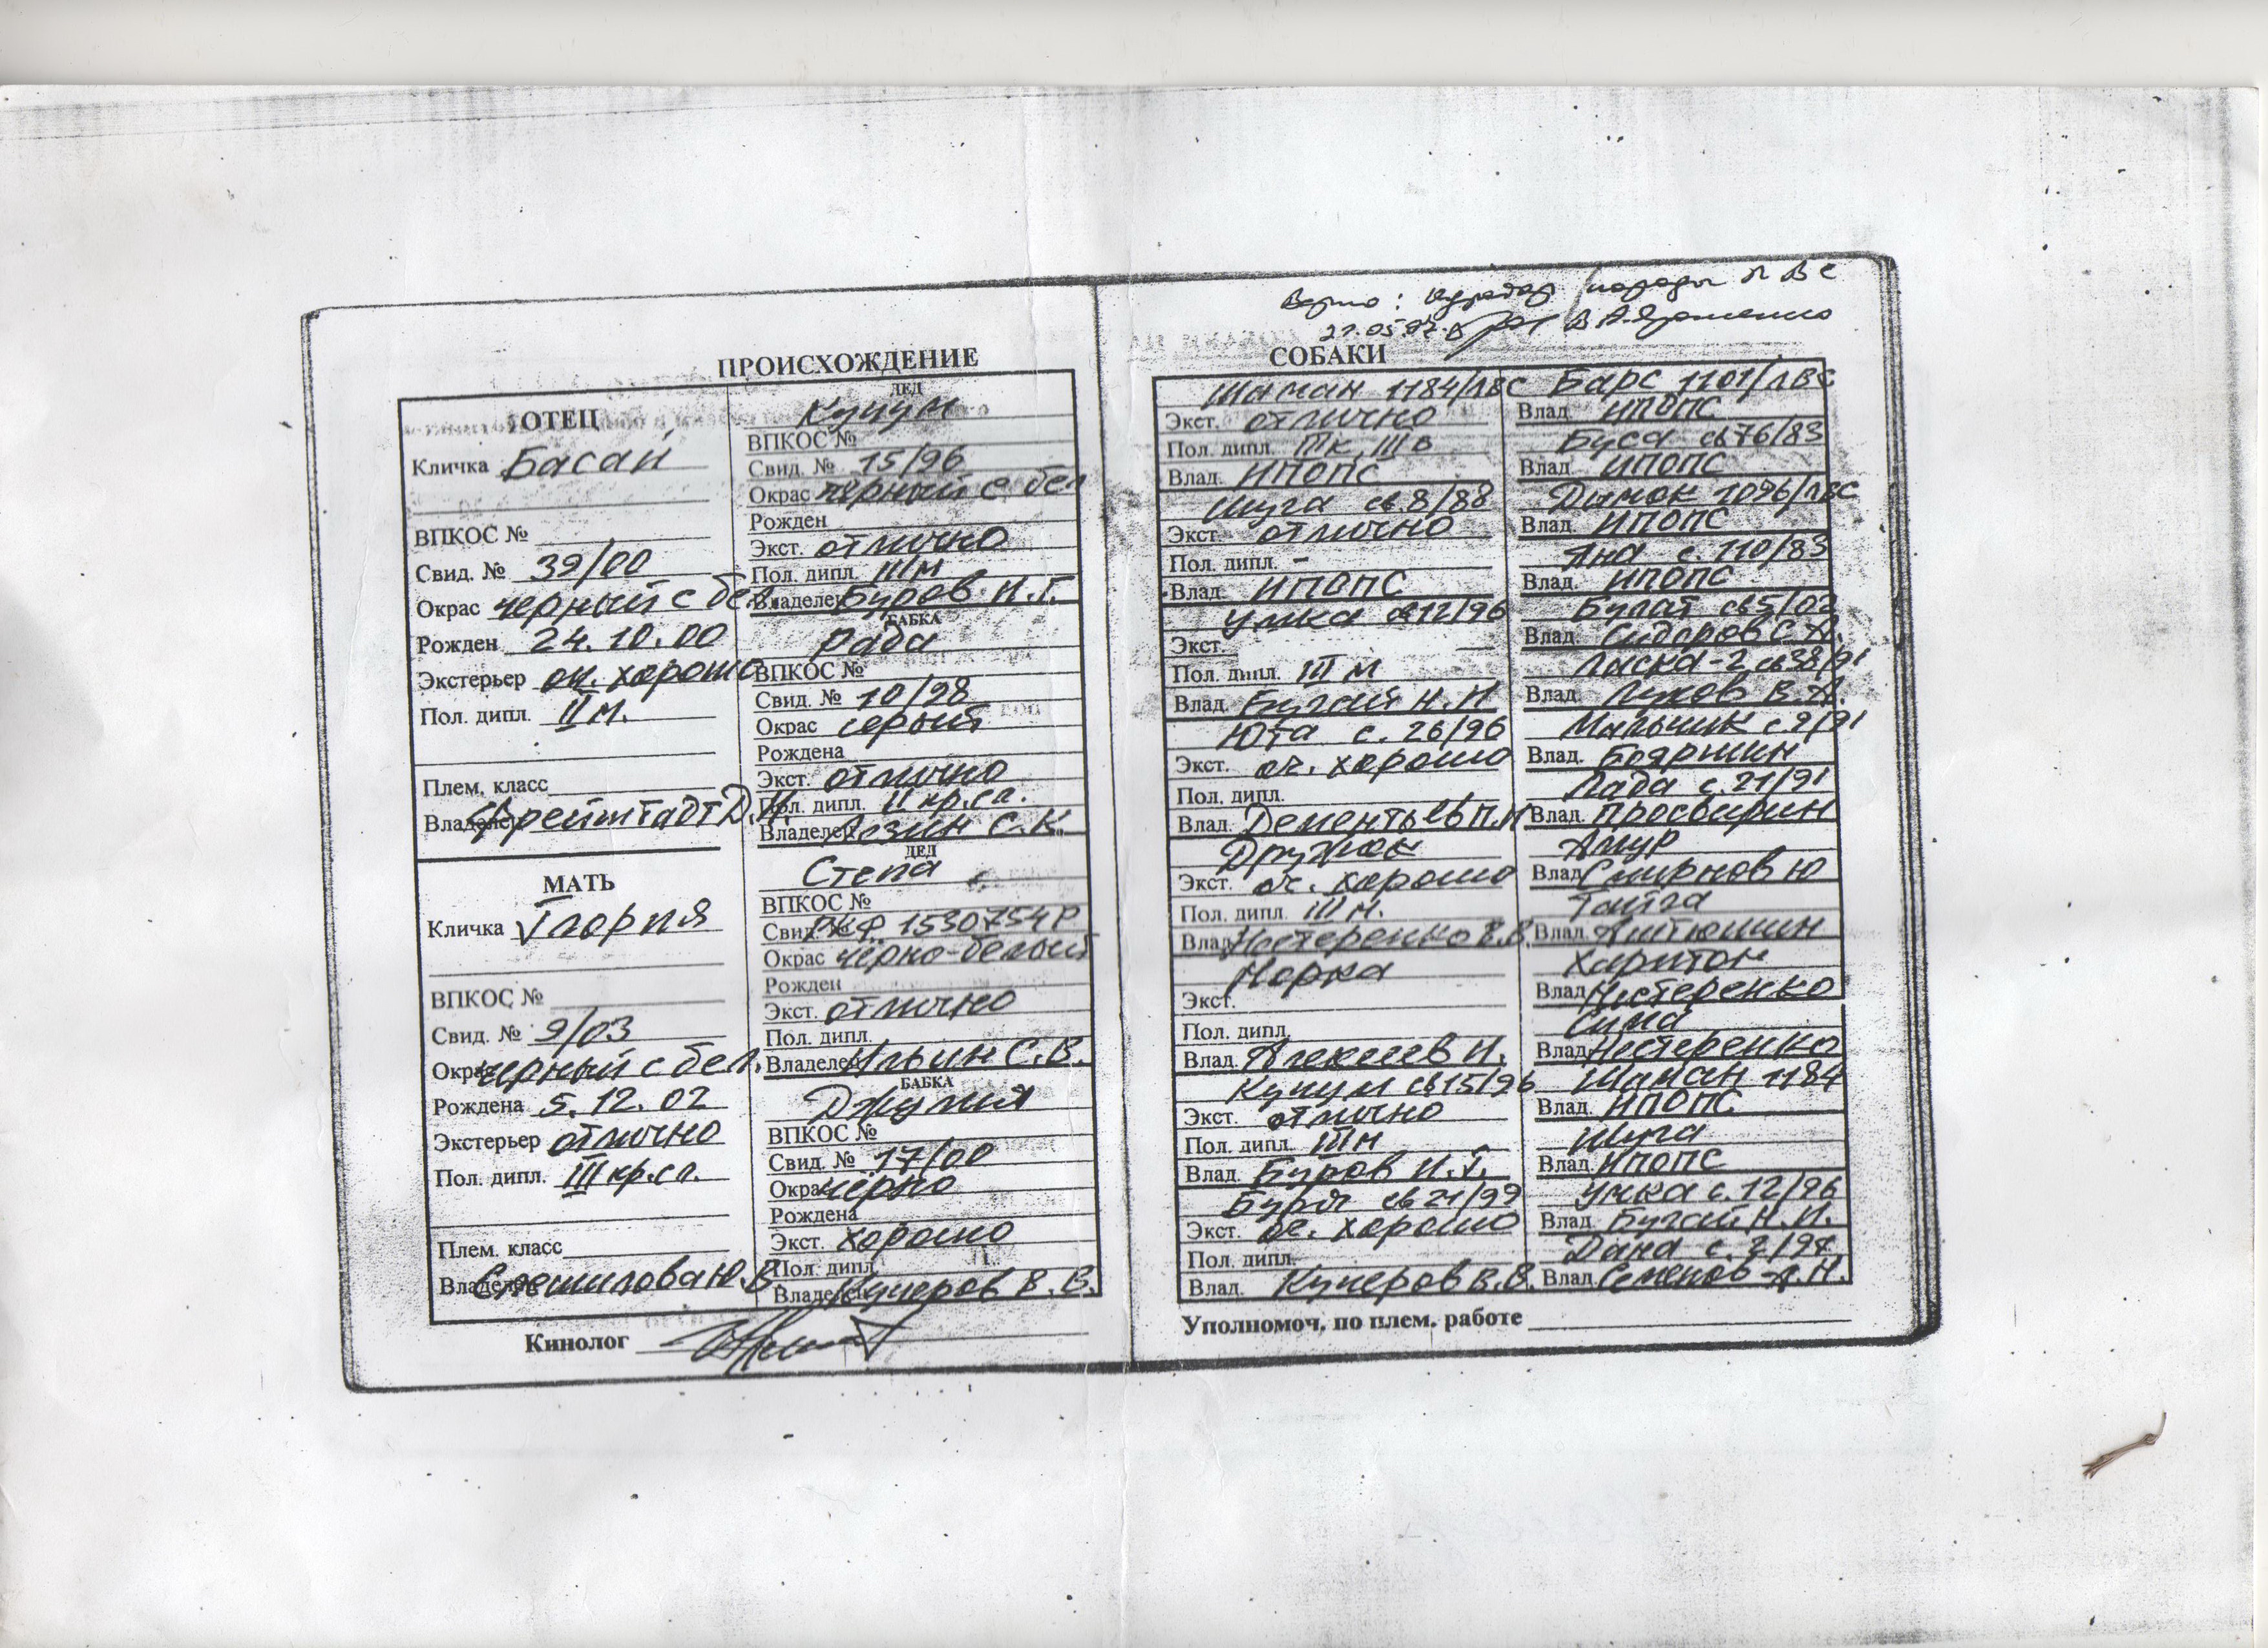 Верно: куратор породы ЛВС
В.А.
ПРОИСХОЖДЕНИЕ
ОТЕЦ
Кличка Басай
ВПКОС №
Свид. № 39/00
Окрас черный с бел.
Рожден 24.10.00
Экстерьер оч. хорошо
Пол. дипл. II м.
Плем. класс
Владелец Фрейштадт Д.И.
МАТЬ
Кличка Глория
ВПКОС №
Свид. № 9/03
Окрас черный с бел.
Рождена 5.12.02
Экстерьер отлично
Пол. дипл. III кр.сл.
Плем. класс
Владелец Ю.В.
Кинолог
ДЕД
Кучум
ВПКОС №
Свид. № 15/96
Окрас черный с бел
Рожден
Экст. отлично
Пол. дипл. III м
Владелец Буров И.Г.
БАБКА
Рада
ВПКОС №
Свид. № 10/98
Окрас серый
Рождена
Экст. отлично
Пол. дипл. II кр.сл.
Владелец С.К.
ДЕД
Степа
ВПКОС №
Свид. РКФ 1530754Р
Окрас черно-белый
Рожден
Экст. отлично
Пол. дипл.
Владелец Ильин С.В.
БАБКА
Джулия
ВПКОС №
Свид. № 17/00
Окрас черно
Рождена
Экст. хорошо
Пол. дипл.
Владелец Кучеров В.В.
СОБАКИ
Шаман 1184/ЛВС
Экст. отлично
Пол. дипл. IIк, IIIв
Влад. ИПОПС
Шуга св.8/88
Экст. отлично
Пол. дипл. -
Влад. ИПОПС
Умка св12/96
Экст.
Пол. дипл. III м
Влад. Бугай Н.И
Юта с. 26/96
Экст. оч. хорошо
Пол. дипл.
Влад. Дементьев П.И
Дружок
Экст. оч. хорошо
Пол. дипл. III м.
Влад. Нестеренко В.В.
Норка
Экст.
Пол. дипл.
Влад. Алексеев И.
Кучум св15/96
Экст. отлично
Пол. дипл. III м
Влад. Буров И.Г.
Буря св21/99
Экст. оч. хорошо
Пол. дипл.
Влад. Кучеров В.В.
Барс 1101/ЛВС
Влад. ИПОПС
Буса св76/83
Влад. ИПОПС
Дымок 1096/ЛВС
Влад. ИПОПС
Яна с. 110/83
Влад. ИПОПС
Булат св5/02
Влад. Сидоров С.А.
Ласка-2 св38/91
Влад. Лужов В.А.
Мальчик с.9/91
Влад. Бояршин
Лада с.21/91
Влад. Просвирин
Амур
Влад. Смирнов Ю
Тайга
Влад.
Харитон
Влад. Нестеренко
Сима
Влад. Нестеренко
Шаман 1184
Влад. ИПОПС
Шуга
Влад. ИПОПС
Умка с.12/96
Влад. Бугай Н.И.
Дана
Влад. Семенов А.Н.
Уполномоч. по плем. работе